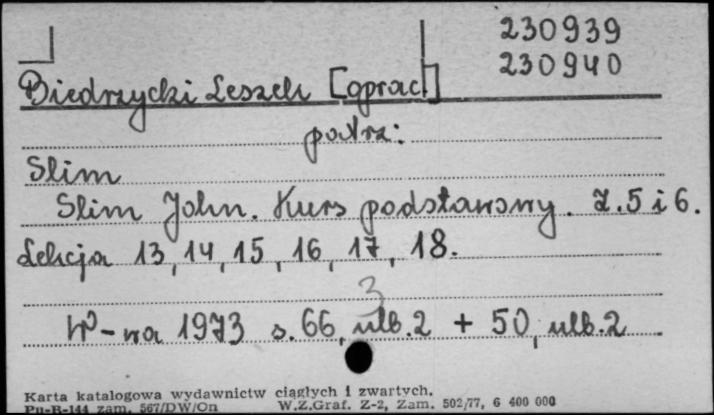 230939
230940
Biedrzycki Leszek [oprac]
patrz:
Slim
Slim John. Kurs podstawowy. Z. 5 i 6.
Lekcja 13, 14, 15, 16, 17, 18.
3
W-wa 1973 s. 66, nlb. 2 + 50, nlb. 2
Karta katalogowa wydawnictw ciągłych i zwartych.
Pu-B-144 zam. 567/DW/On W.Z.Graf. Z-2, Zam. 502/77, 6 400 000